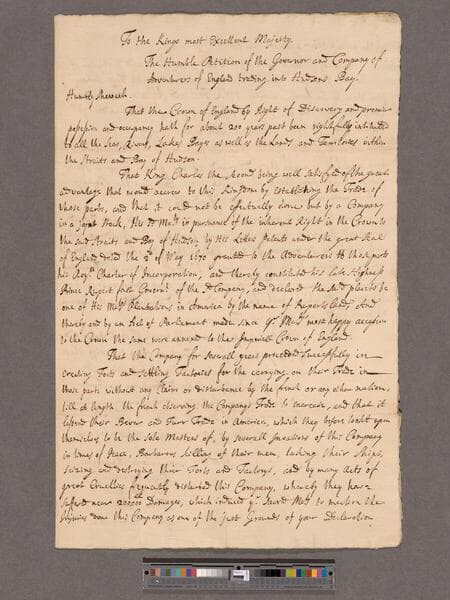 To the Kings most Excellent Majesty.
The Humble Petition of the Governor and Company of
Adventurers of England trading into Hudsons Bay.
Humbly Sheweth
That the Crown of England by Right of Discovery and
possession and occupancy hath for about 200 years past been rightfully intituled
to all the Seas, Rivers, Lakes Bayes as well as the Lands and Territories within
the Streits and Bay of Hudson.
That King Charles the Second being well Satisfyed of the great
advantage that would accrew to this Kingdom by Establishing the Trade of
those parts, and that it could not be effectually done but by a Company
in a joynt Stock, His in pursuance of the inherent Right in the Crown to
the said Streits and Bay of Hudson by His Letters Patents under the great Seal
of England dated the 2d of May 1670 granted to the Adventurers to those parts
his Charter of Incorporation, and thereby constituted his late Highness
Prince Rupert first of the Company, and declared the said places to be
one of His Plantations in America by the name of Ruperts land, And
thereby and by an Act of Parlement made since most happy accession
to the Crown the same were annexed to the Imperial Crown of England.
That the Company for severall years proceeded Successfully in
Erecting Forts and Settling Factories for the carrying on their Trade in
those parts without any Claim or disturbance by the french or any other nation,
till at length the french observing the Companys Trade to increase, and that it
lessened their Bever and Furr Trade in America, which they before lookt upon
themselves to be the Sole Masters of, by severall Invasions of this Company
in times of Peace, Barbarous killing of their men, taking their Ships,
seizing and destroying their Forts and Factorys, and by many Acts of
great Cruelties frequently disturbed this Company, whereby they have
suffered near Damages, which induced Sacred to mention the
injuries done this Company as one of the just Grounds of your Declaration